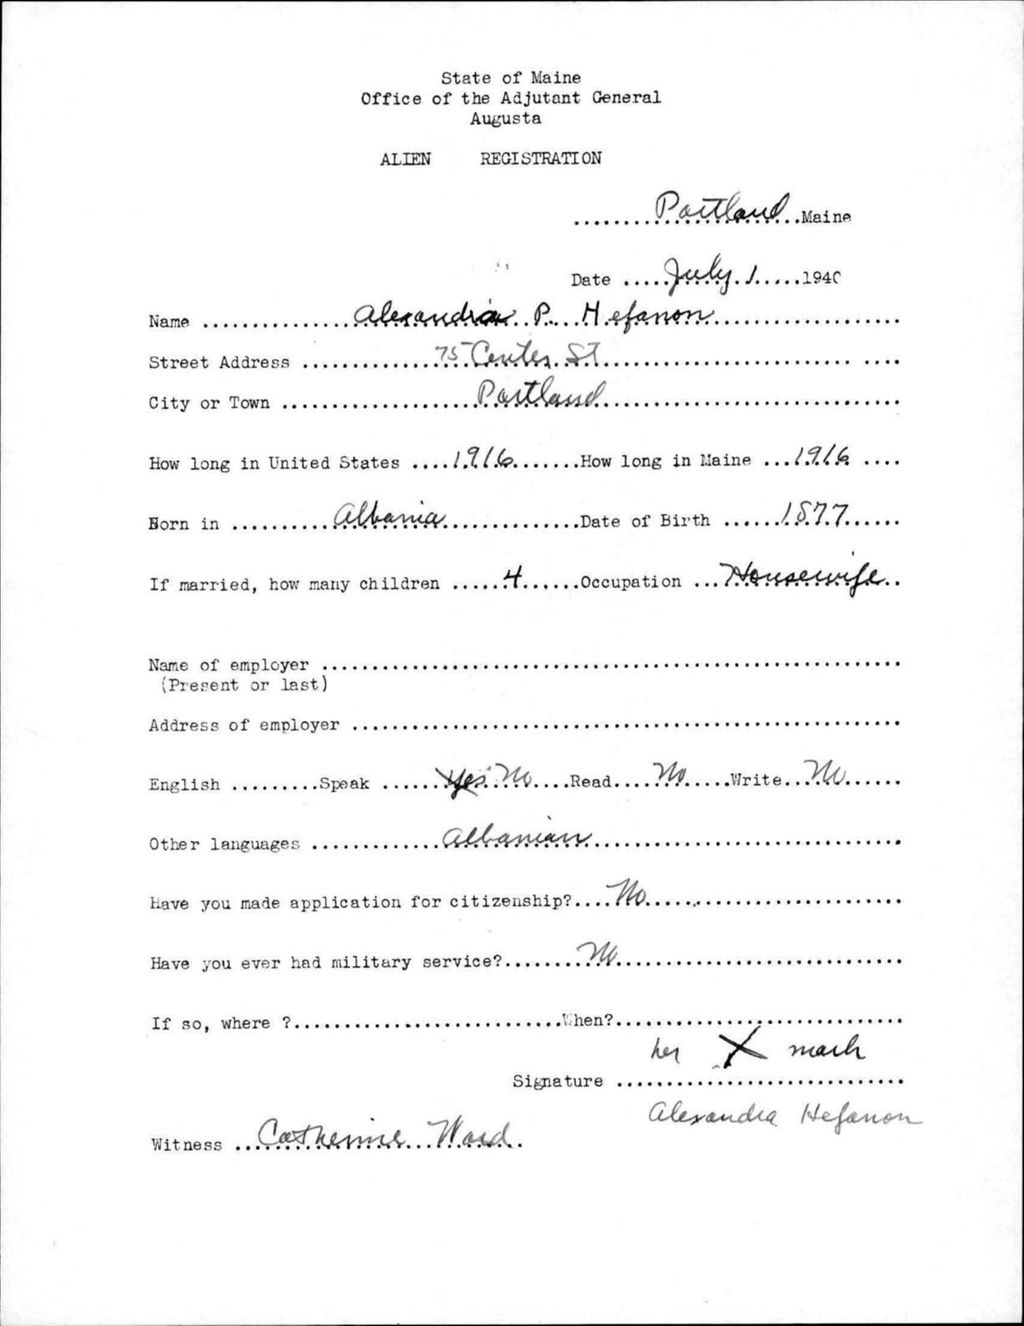 State of Maine
Office of the Adjutant General
Augusta
ALIEN REGISTRATION
........Portland..Maine
Date .....July 1.....1940
Name ...............Alexandra P. Hefanon......................
Street Address ...............75 Center St..............................
City or Town .......................Portland...................................
How long in United States ....1916.......How long in Maine ...1916 ....
Born in ..........Albania...............Date of Birth ......1877......
If married, how many children .....4......Occupation ...Housewife..
Name of employer ....................................................................
(Present or last)
Address of employer ................................................................
English .........Speak ......Yes No....Read....No.....Write..No......
Other languages .............Albanian...................................
Have you made application for citizenship?....No..............................
Have you ever had military service?........No.................................
If so, where ?...............................When?..................................
her X mark
Signature ..................................
Alexandra Hefanon
Witness ..Catherine Ward.